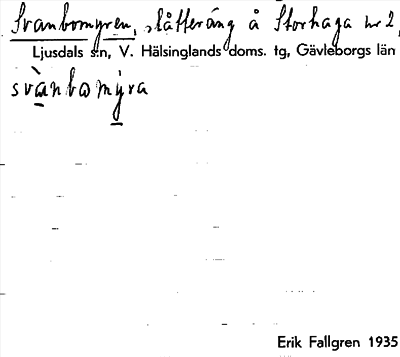 Svanbomyren, slåtteräng å Storhaga nr 2,
Ljusdals sn, V. Hälsinglands doms. tg, Gävleborgs län
svànbomýra
Erik Fallgren 1935